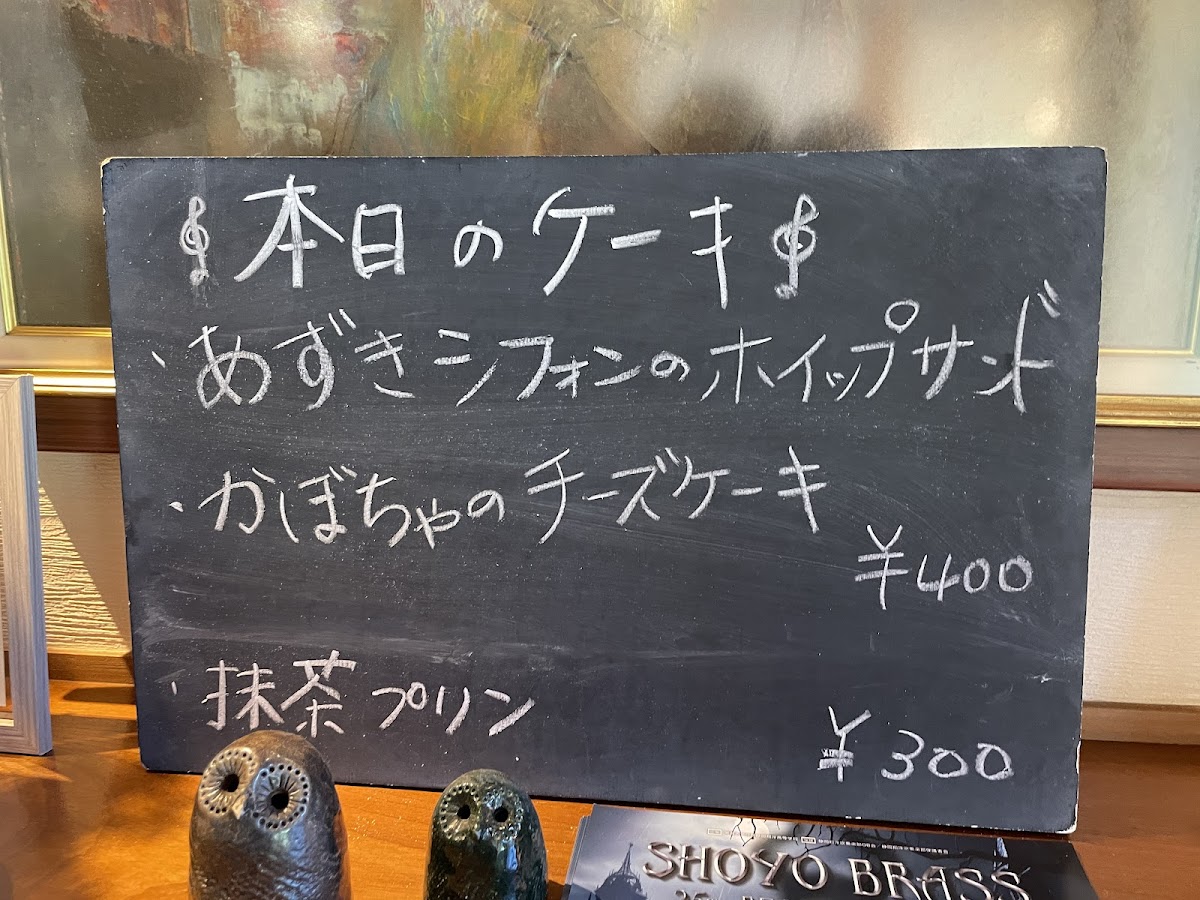 本日のケーキ
、あずきシフォンのホイップサンド
、かぼちゃのチーズケーキ
¥400
、抹茶プリン
¥300
SHOYO BRASS